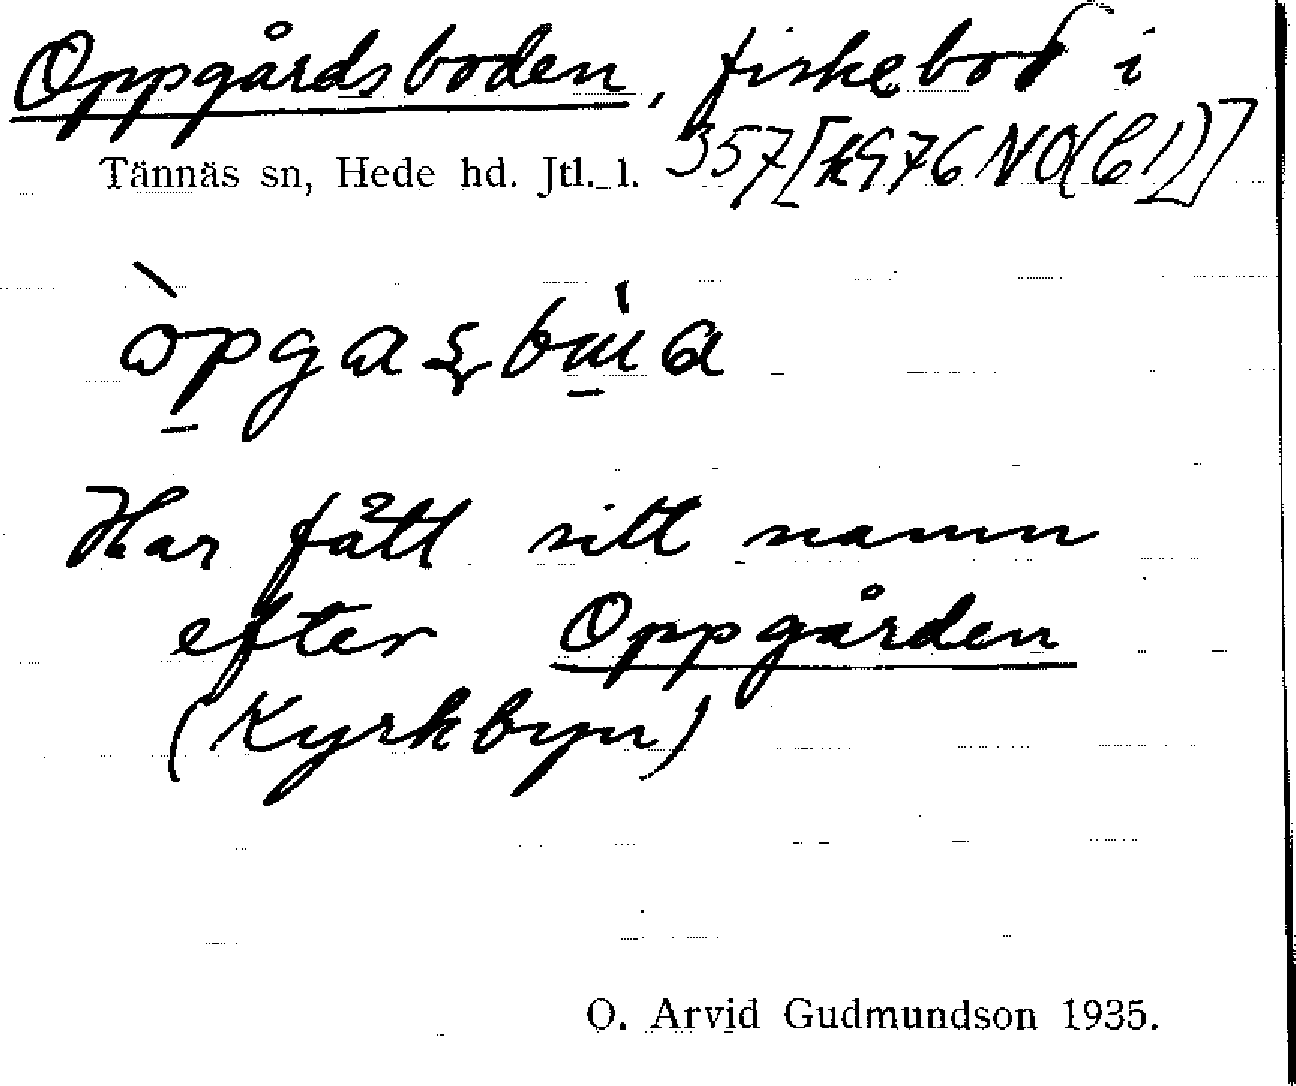 Oppgårdsboden, fiskebod i
Tännäs sn, Hede hd. Jtl. l. 357[k976NO(C1)]
Har fått sitt namn
efter Oppgården
(Kyrkbyn)
O. Arvid Gudmundson 1935.